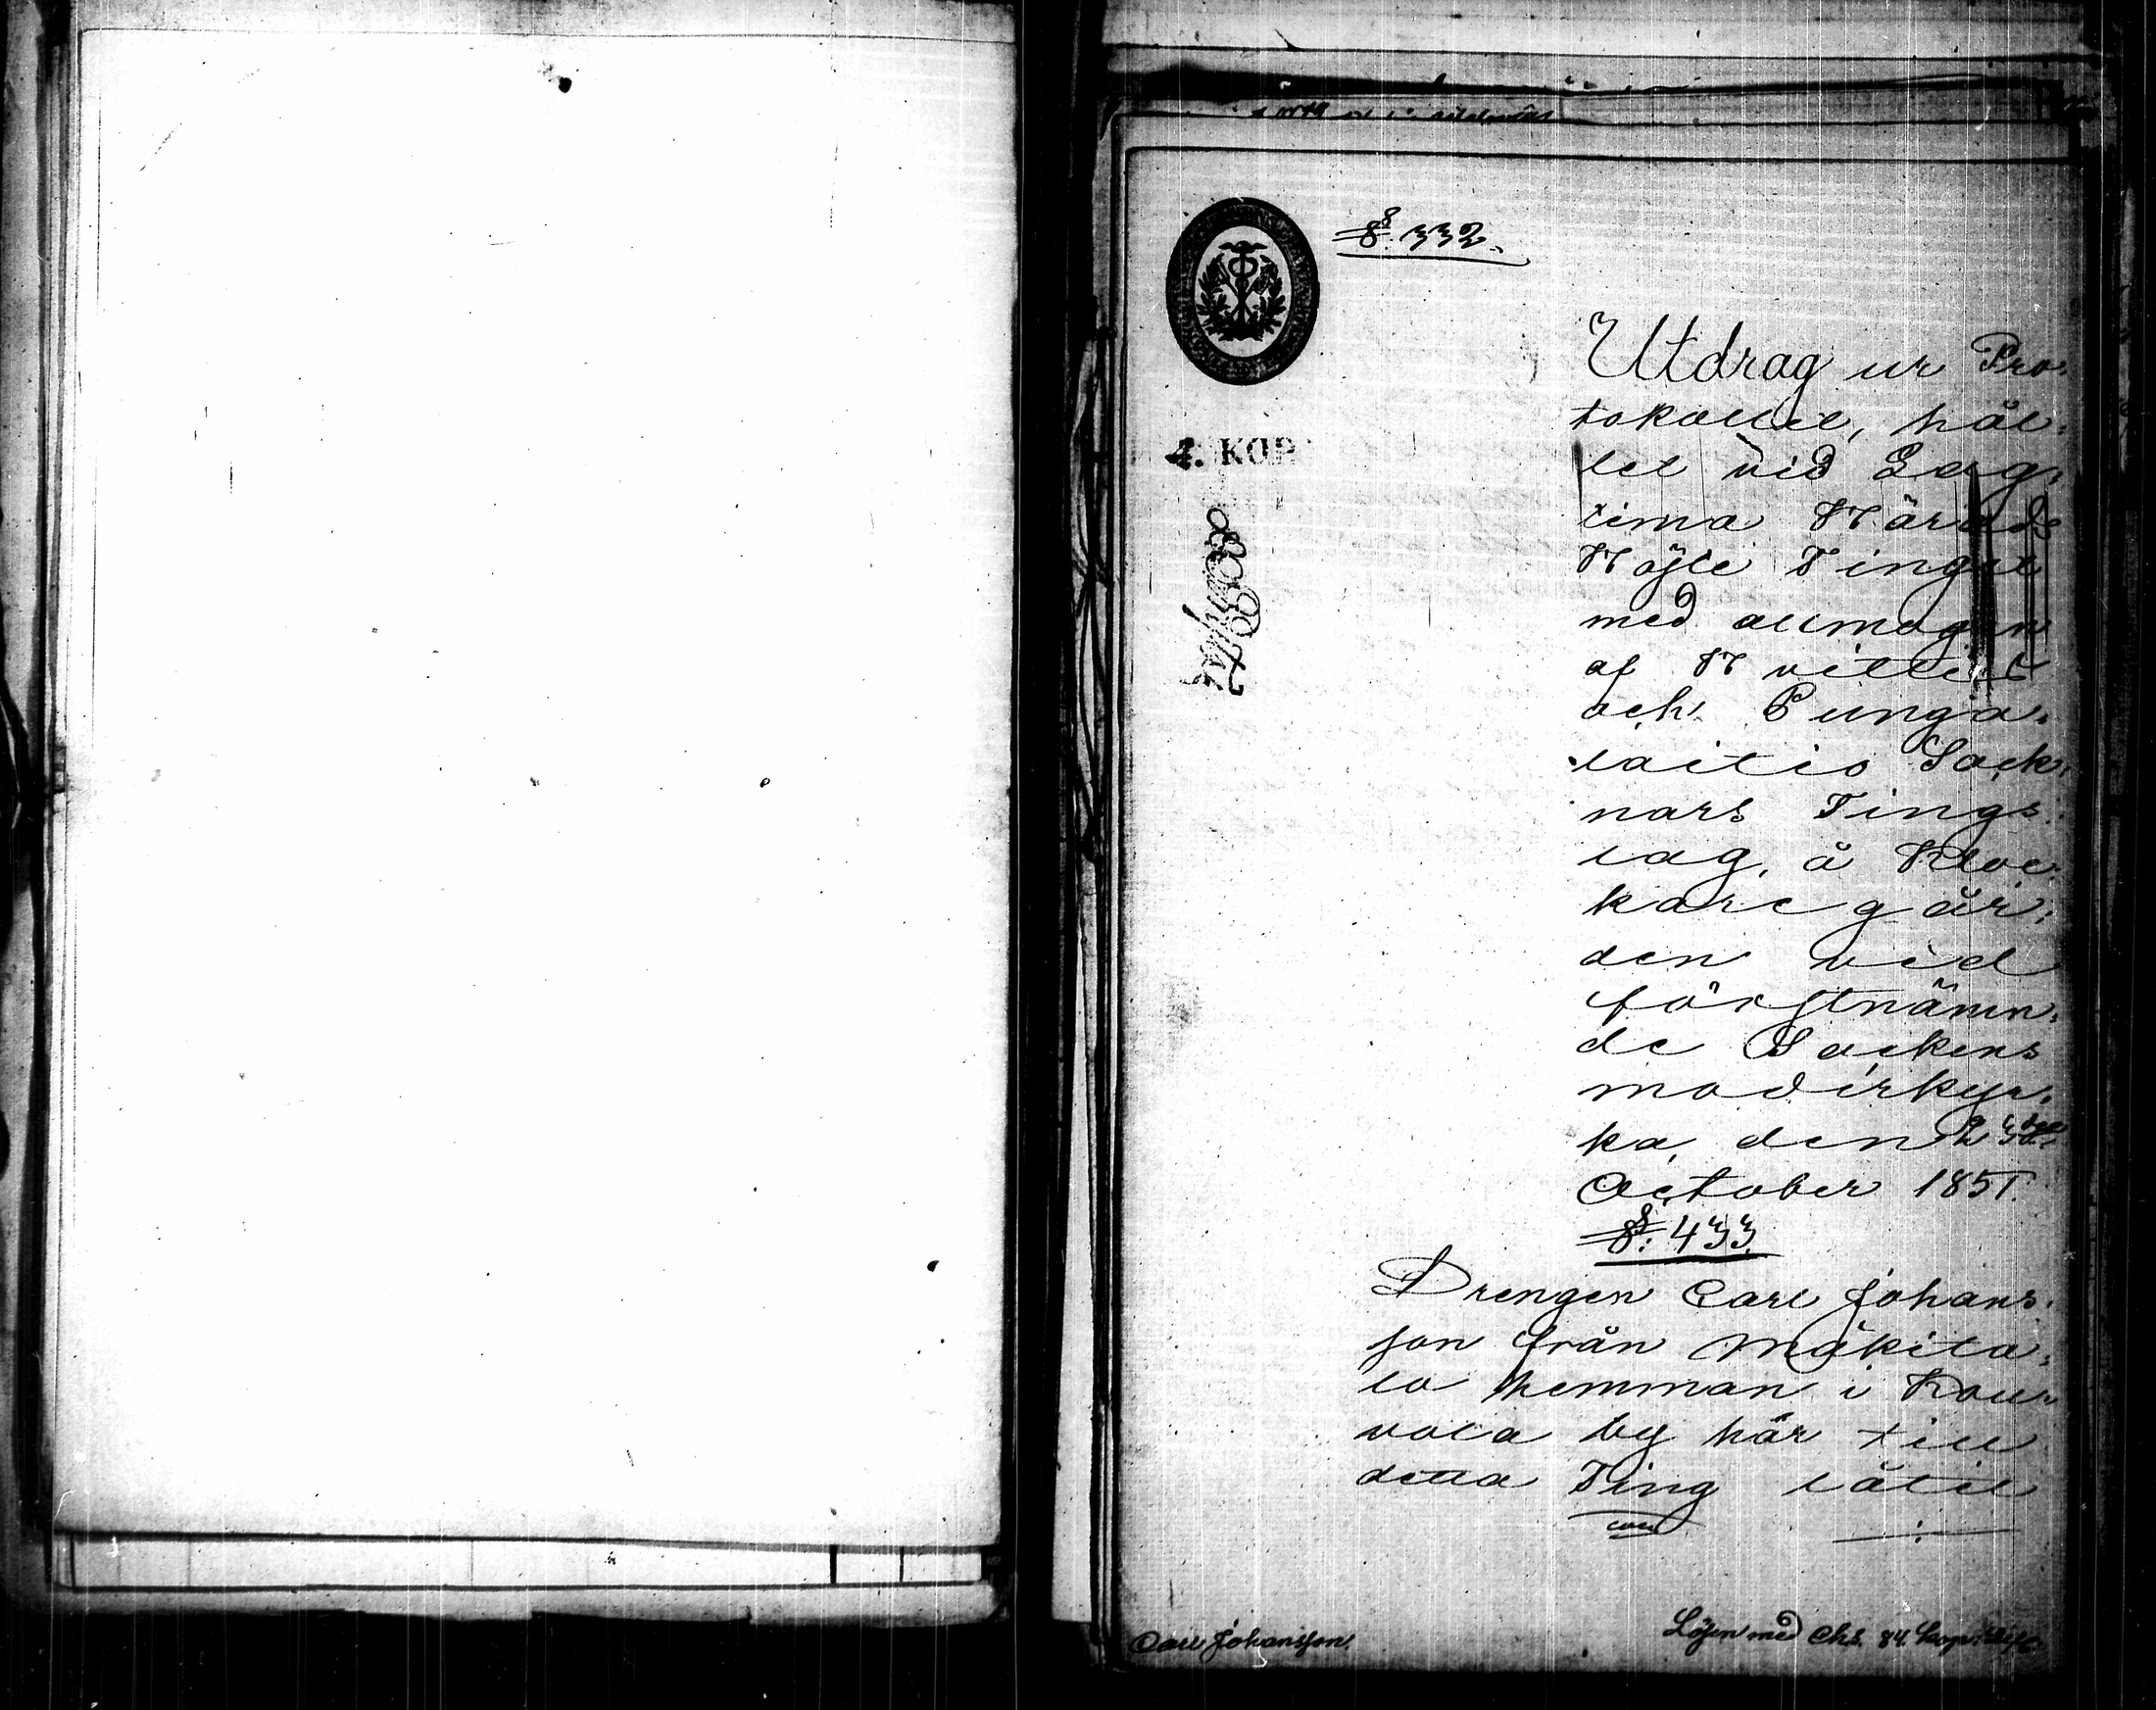 §. 332.
4. KOP
Utdrag ur Pro-
tokollet, hål-
let vid Lag-
tima Härads
Höste Tinget
med allmogen
af Hvittis
och Punga-
laitio Sock-
nars Tings
lag, å Kloc-
karegår-
den vid
förstnämn-
de Sockens
moderkyr-
ka, den
October 1851.
§: 433.
Drengen Carl Johans-
son från Mäkita-
lo hemman i Kou-
vola by här till
detta Ting låtit
Carl Johansson.
Lösen med Chs. 84. kop: silfr